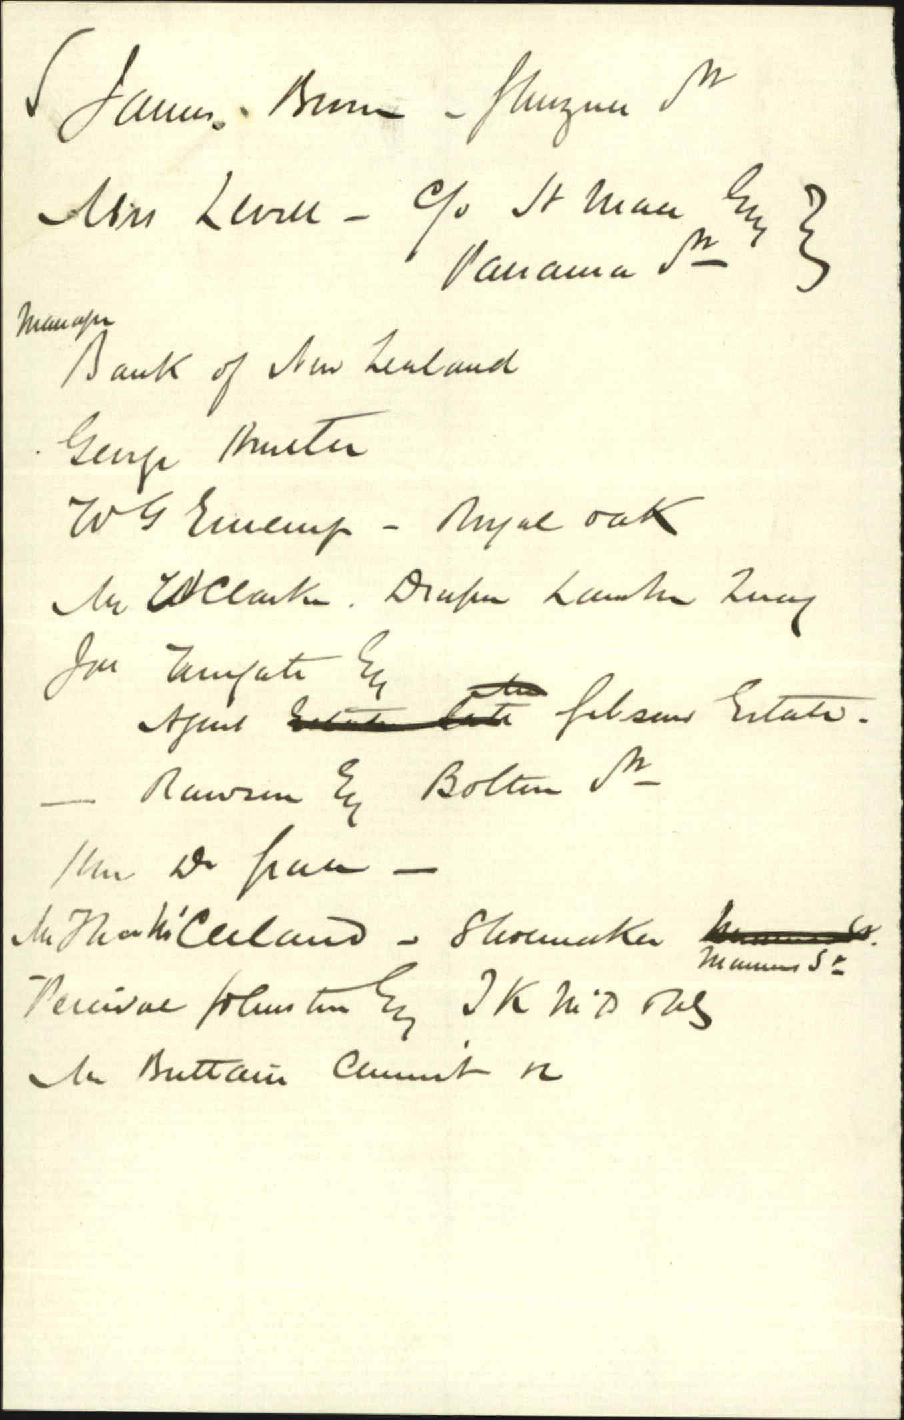 James Brown - Ghuznee St
Miss Levell - C/o St Mau Esq
Panama St
Manager
Bank of New Zealand
George Hunter
W G Emeny - Royal oak
Mr W Clark. Draper Lambton Quay
Jos Tungate Esq
Agent Gibsons Estate.
— Rawson Esq Bolton St
Hon Dr Grace —
Mr Thos McCleland - Shoemaker
Manners St
Percival Johnston Esq T K McD &
Mr Buttain